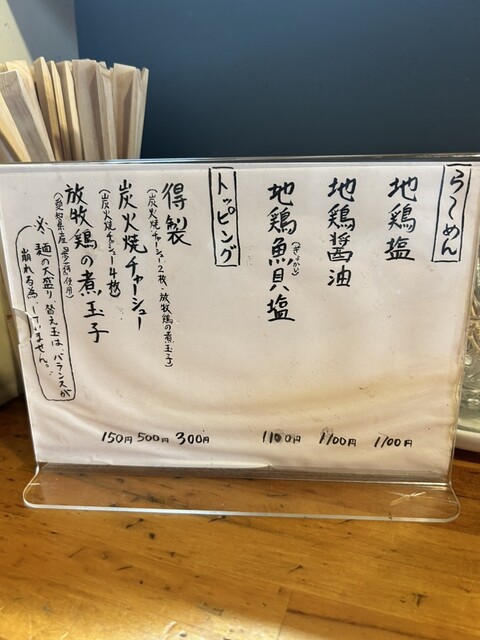 らーめん
地鶏塩 1100円
地鶏醤油 1100円
地鶏魚貝塩 1100円
(ぎょかい)
トッピング
得製 300円
(炭火焼チャーシュー2枚・放牧鶏の煮玉子)
炭火焼チャーシュー 500円
(炭火焼チャーシュー4枚)
放牧鶏の煮玉子 150円
※ 麺の大盛り、替え玉は、バランスが
崩れる為、していません。